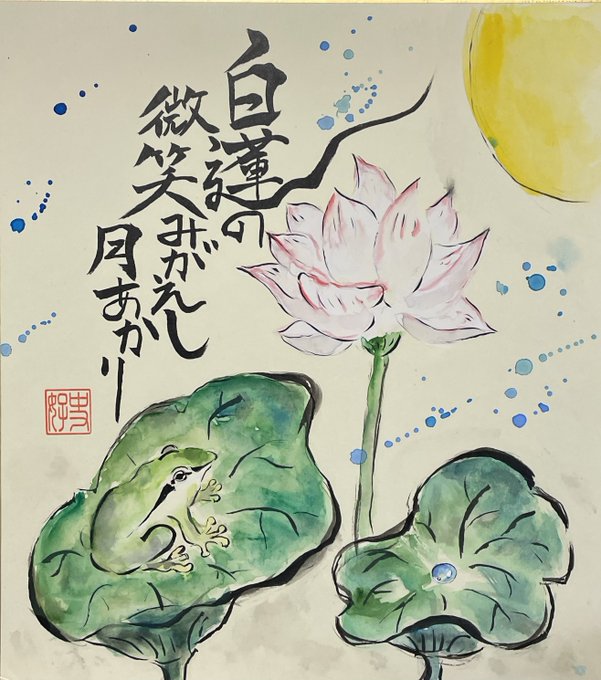 白蓮の
微笑みがえし
月あかり